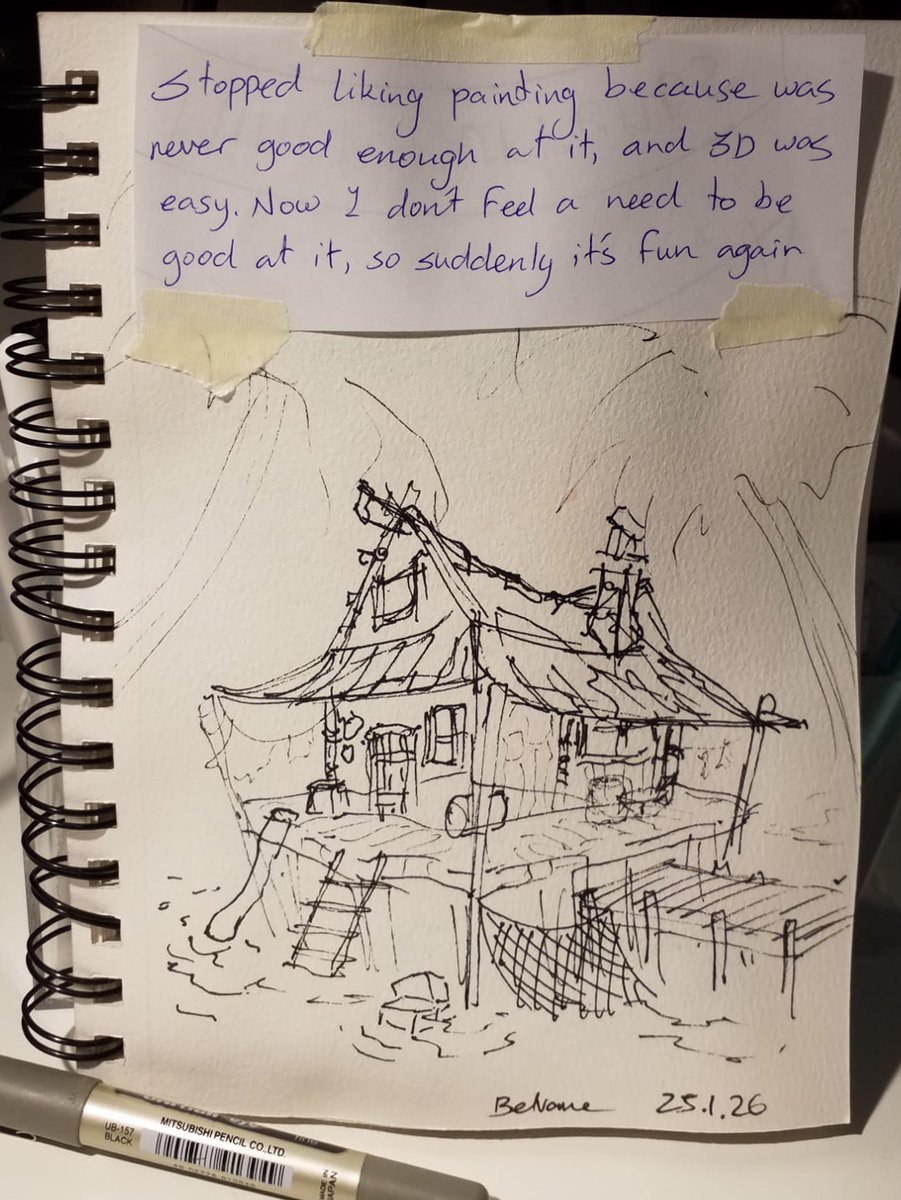 Stopped liking painting because was
never good enough at it, and 3D was
easy. Now I don't feel a need to be
good at it, so suddenly it's fun again
BeNome 25.1.26
UB-157
BLACK
MITSUBISHI PENCIL CO., LTD.
MADE IN
JAPAN